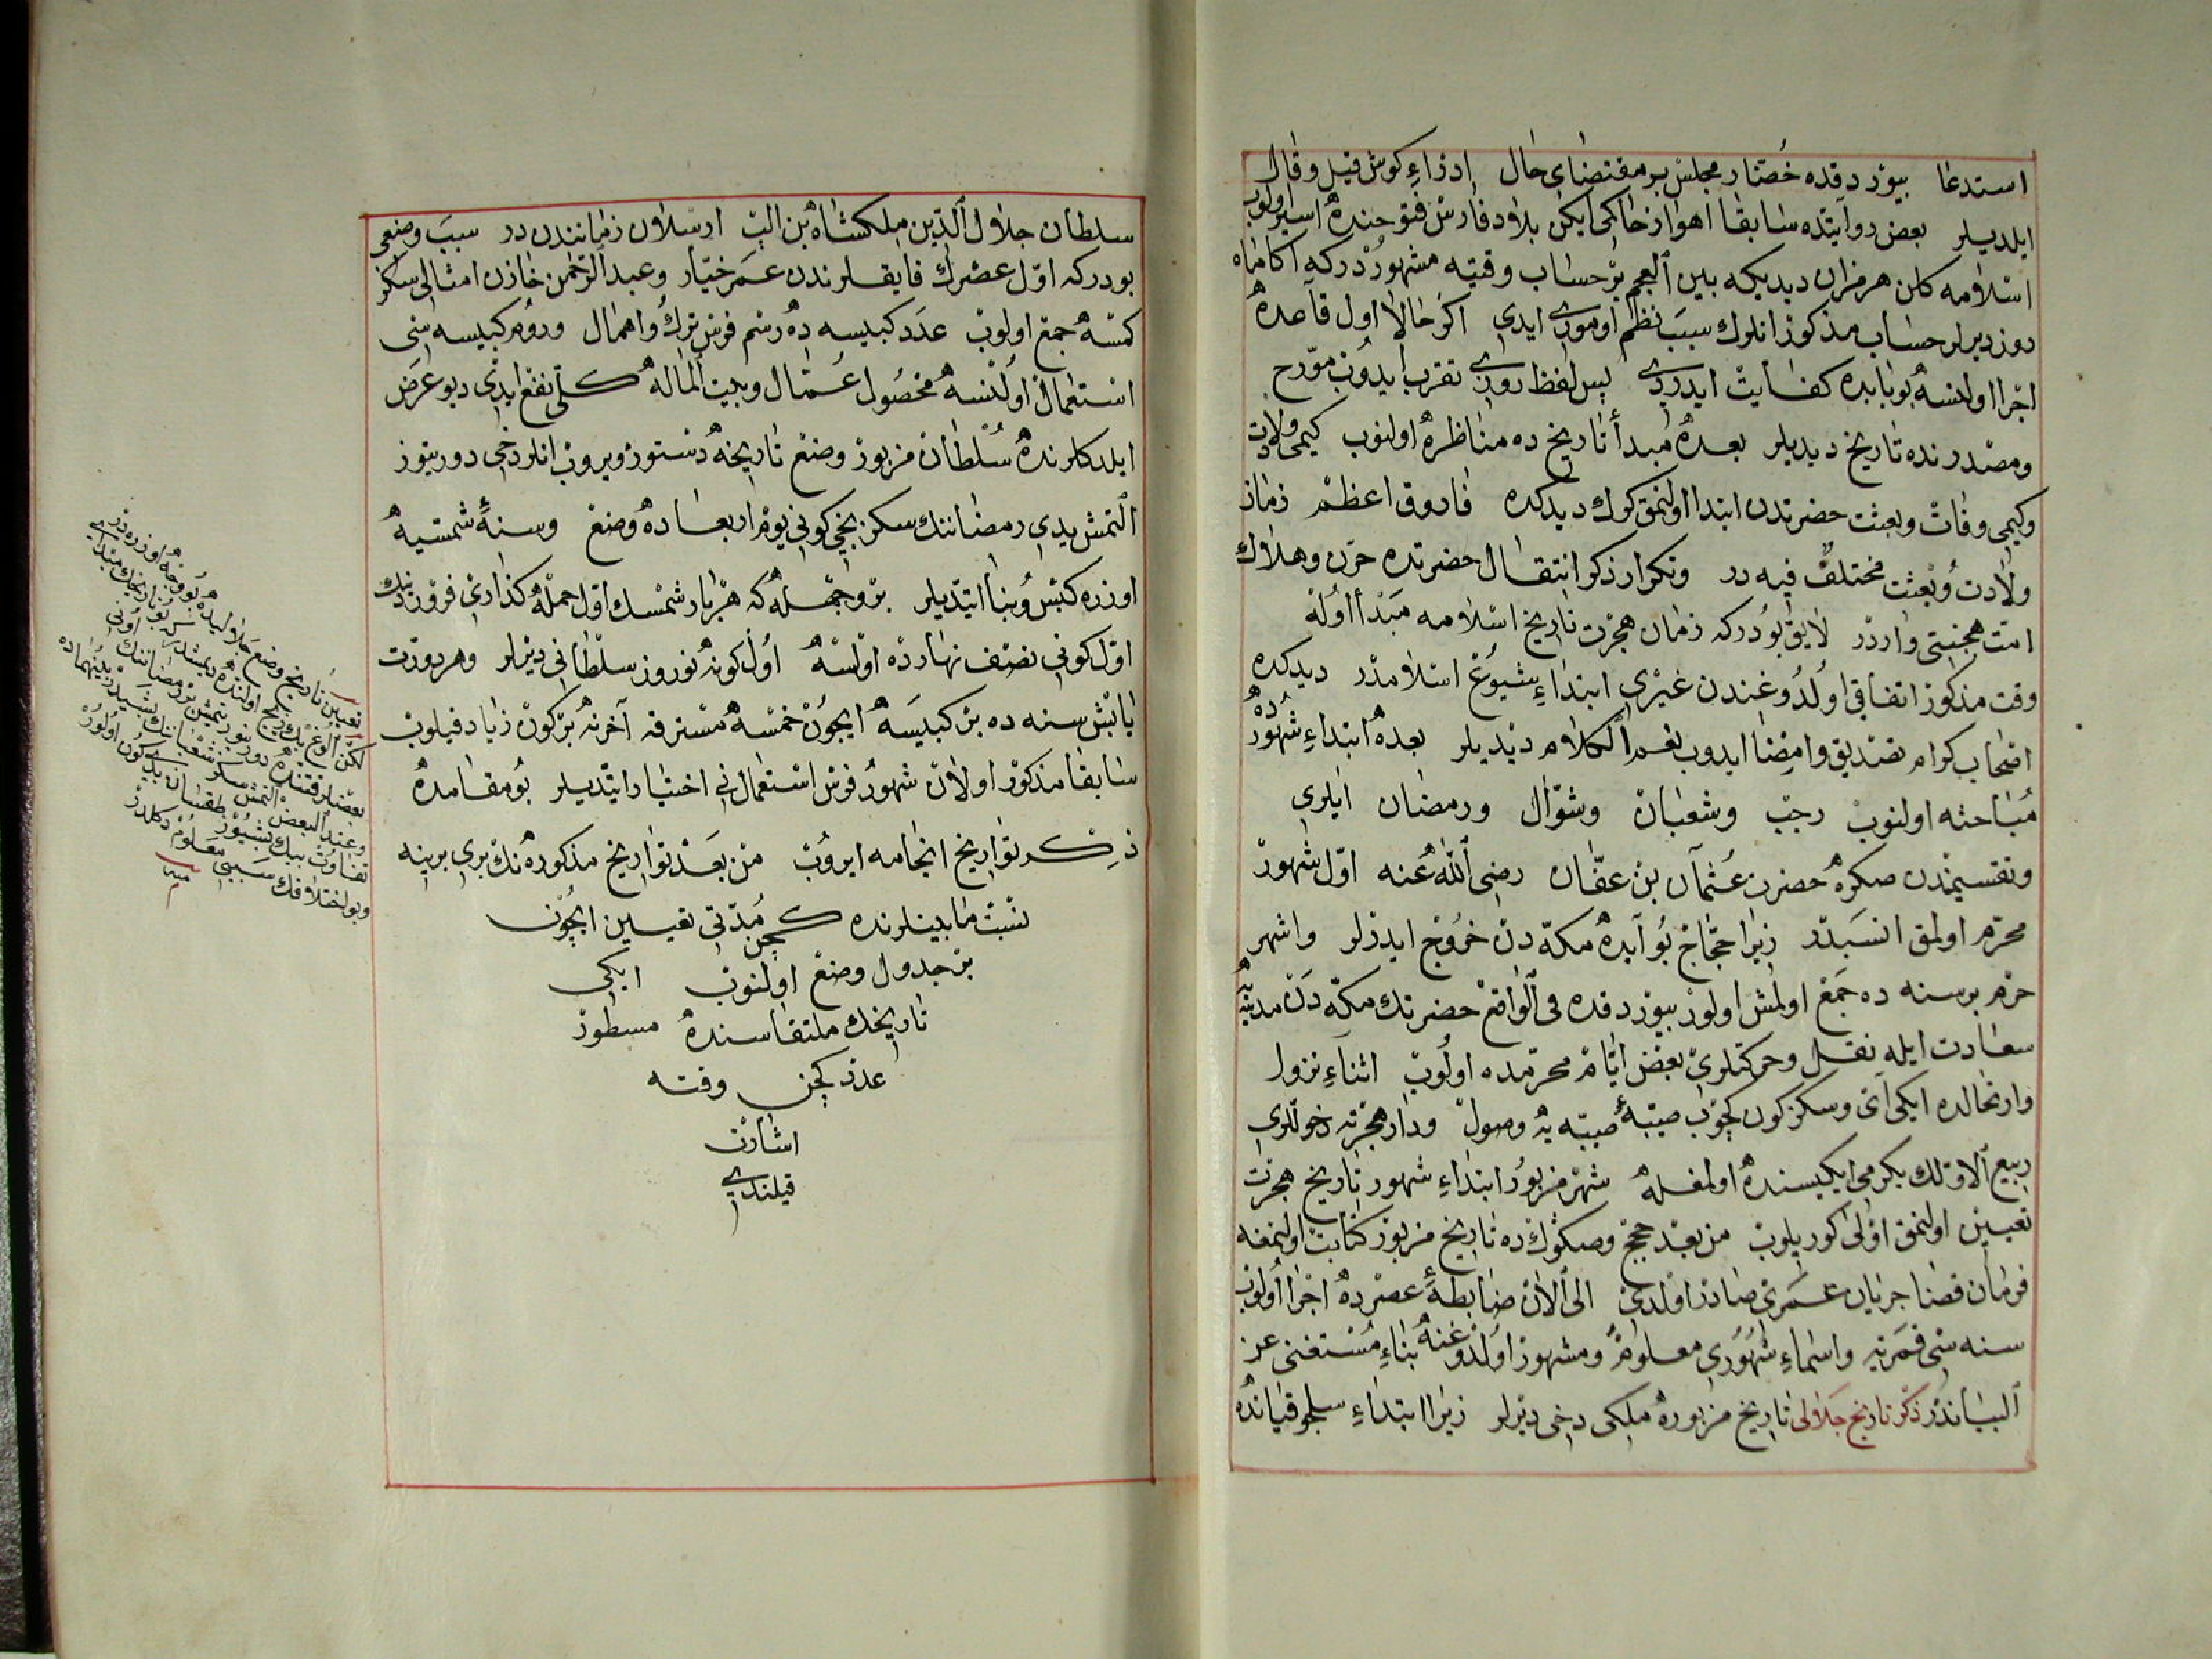 استدعا بیوردقده حضار مجلس بر مقتضای حال ادزاء کوش قیل وقال
ایلدیلر بعض روایتده سابقا اهواز حاکمی ایکن بلاد فارس فتوحنده اسیر اولوب
اسلامه کلن هرمزان دیدیکه بین العجم بر حساب وقتیه مشهوردرکه اکا ماه
روز دیرلر حساب مذکور انلرك سبب نظم اوموری ایدی اکر حالا اول قاعده
اجرا اولنسه بوبابده کفایت ایدردی پس لفظ روزی تعرب ایدوب مورح
ومصدرنده تاریخ دیدیلر بعده مبدأ تاریخ ده مناظره اولنوب کیمی ولادت
وکیمی وفات وبعثت حضرتدن ابتدا اولنمق کرك دیدکده فاروق اعظم زمان
ولادت وبعثت مختلف فیه در وتکرار ذکر انتقال حضرتده حزن وهلاك
امت هجنتی واردر لایق بودرکه زمان هجرت تاریخ اسلامه مبدأ اوله
وقت مذکور اتفاقی اولدوغندن غیری ابتداء شیوع اسلامدر دیدکده
اصحاب کرام تصدیق وامضا ایدوب نعم الکلام دیدیلر بعده ابتداء شهورده
مباحثه اولنوب رجب وشعبان وشوال ورمضان ایلری
وتقسیمندن صکره حضرت عثمان بن عفان رضی الله عنه اول شهور
محرم اولمق انسبدر زیرا حجاج بو آیده مکه دن خروج ایدرلر واشهر
حرم بر سنه ده جمع اولمش اولور بیوردقده فی الواقع حضرتك مکه دن مدینه یه
سعادت ایله نقل وحرکتلری بعض ایام محرمده اولوب اثناء نزول
وارتحالده ایکی آی وسکز کون کچوب صیبهٔ صیبه یه وصول ودار هجرته دخوللری
ربیع الاولك یکرمی ایکیسنده اولمغله شهر مزبور ابتداء شهور تاریخ هجرت
تعیین اولنمق اولی کوریلوب من بعد حجج وصکوك ده تاریخ مزبور کتابت اولنمغه
فرمان قضا جریان عمری صادر اولدی الی الآن ضابطهٔ عصرده اجرا اولنوب
سنه سی قمریه واسماء شهوری معلوم ومشهور اولدوغنه بناء مستغنی عن
البیاندر ذکر تاریخ جلالی تاریخ مزبوره ملکی دخی دیرلر زیرا ابتداء سلجوقیانده
سلطان جلال الدین ملکشاه بن الب ارسلان زمانندن در سبب وضعی
بودرکه اول عصرك فایقلرندن عمر خیار وعبد الرحمن خازن امثالی سکز
کمسه جمع اولوب عدد کبیسه ده رسم فرس ترك واهمال وروم کبیسه سنی
استعمال اولنسه محصول عمال وبیت الماله کلی نفع ایدی دیو عرض
ایلدکلرنده سلطان مزبور وضع تاریخه دستور ویروب انلر دخی دورتیوز
التمش یدی رمضاننك سکزنجی کونی یوم اربعاده وضع وسنهٔ شمسیه
اوزره کبس وبنا ایتدیلر بر وجهله که هر بار شمسك اول حمله کذاری فروردینك
اول کونی نصف نهارده اولسه اول کونه نوروز سلطانی دیرلر وهر دورت
یا بش سنه ده بر کبیسه ایچون خمسه مسترقه آخرنه بر کون زیاد قیلوب
سابقا مذکور اولان شهور فرس استعمالنی اختیار ایتدیلر بو مقامده
ذکر تواریخ انجامه ایروب من بعد تواریخ مذکوره نك بری برینه
نسبت مابینلرنده کچن مدتی تعیین ایچون
بر جدول وضع اولنوب ایکی
تاریخك ملتقاسنده مسطور
عدد کچن وقته
اشارت
قیلندی
تعیین تاریخ وضع جلالیده بو وجه اوزره در
لکن الوغ بك زیج اولنده دیمشدرکه بو تاریخك مبدأی
بعضلر قتنده دورتیوز یتمش بر رمضاننك اونی
وعند البعض التمش سکز شعباننك بشیدر بینهماده
تفاوت بیك بشیوز طقسان یدی کون اولور
وبو اختلافك سببی معلوم دکلدر
منه